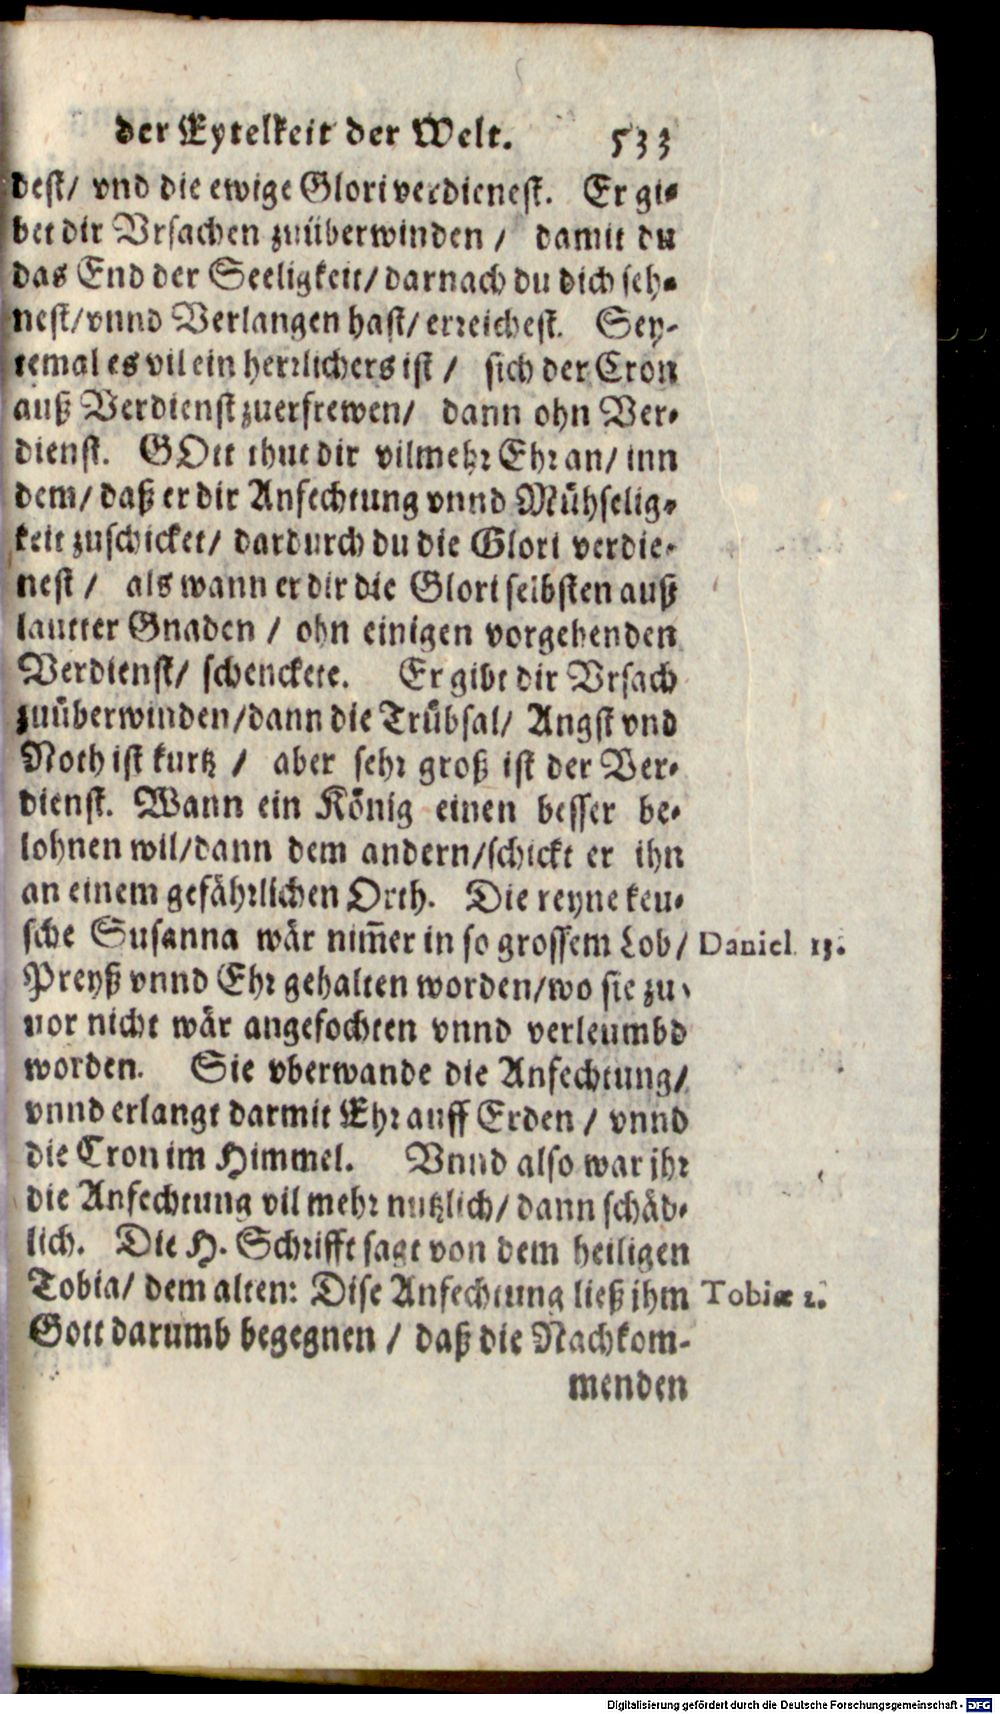 der Eytelkeit der Welt. 533
dest/ vnd die ewige Glori verdienest. Er gi-
bet dir Vrsachen zuüberwinden / damit du
das End der Seeligkeit/ darnach du dich seh-
nest/vnnd Verlangen hast/ erreichest. Sey-
temal es vil ein herrlichers ist / sich der Cron
auß Verdienst zuerfrewen/ dann ohn Ver-
dienst. GOtt thut dir vilmehr Ehr an/ inn
dem/ daß er dir Anfechtung vnnd Mühselig-
keit zuschicket/ dardurch du die Glori verdie-
nest / als wann er dir die Glori selbsten auß
lautter Gnaden / ohn einigen vorgehenden
Verdienst/ schenckete. Er gibt dir Vrsach
zuüberwinden/dann die Trübsal/ Angst vnd
Noth ist kurtz / aber sehr groß ist der Ver-
dienst. Wann ein König einen besser be-
lohnen wil/dann dem andern/schickt er ihn
an einem gefährlichen Orth. Die reyne keu-
sche Susanna wär nim̅er in so grossem Lob/ Daniel. 13.
Preyß vnnd Ehr gehalten worden/wo sie zu-
uor nicht wär angefochten vnnd verleumbd
worden. Sie vberwande die Anfechtung/
vnnd erlangt darmit Ehr auff Erden / vnnd
die Cron im Himmel. Vnnd also war ihr
die Anfechtung vil mehr nutzlich/ dann schäd-
lich. Die H. Schrifft sagt von dem heiligen
Tobia/ dem alten: Dise Anfechtung ließ ihm Tobiæ 2.
Gott darumb begegnen / daß die Nachkom-
menden
Digitalisierung gefördert durch die Deutsche Forschungsgemeinschaft - DFG